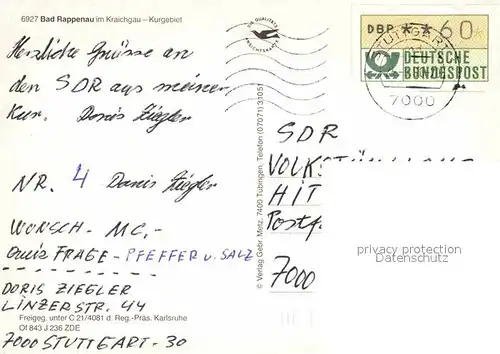 6927 Bad Rappenau im Kraichgau – Kurgebiet
Herzliche Grüsse an
den SDR aus meiner
Kur. Doris Ziegler
NR. 4 Doris Ziegler
WUNSCH- MC.-
Quiz FRAGE - PFEFFER U. SALZ
DORIS ZIEGLER
LINZERSTR. 44
Freigeg. unter C 21/4081 d. Reg.-Präs. Karlsruhe
Of 843 J 236 ZDE
7000 STUTTGART-30
© Verlag Gebr. Metz, 7400 Tübingen, Telefon (07071) 31051
DBP ** 60*
DEUTSCHE
BUNDESPOST
7000
SDR
VOLKSTÜM
HIT
Postf
7000
privacy protection
Datenschutz